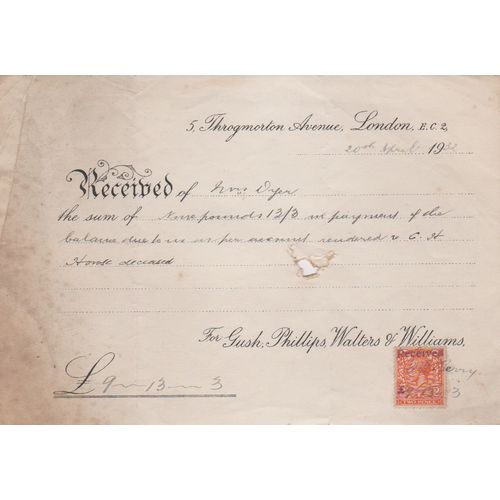 5, Throgmorton Avenue, London, E.C. 2,
20th April 1922
Received of Mrs Dyer
the sum of Nine pounds 13/3 in payment of the
balance due to us as per account rendered C H
deceased
For Gush, Phillips, Walters & Williams,
Received
£ 9 - 13 - 3
TWO PENCE